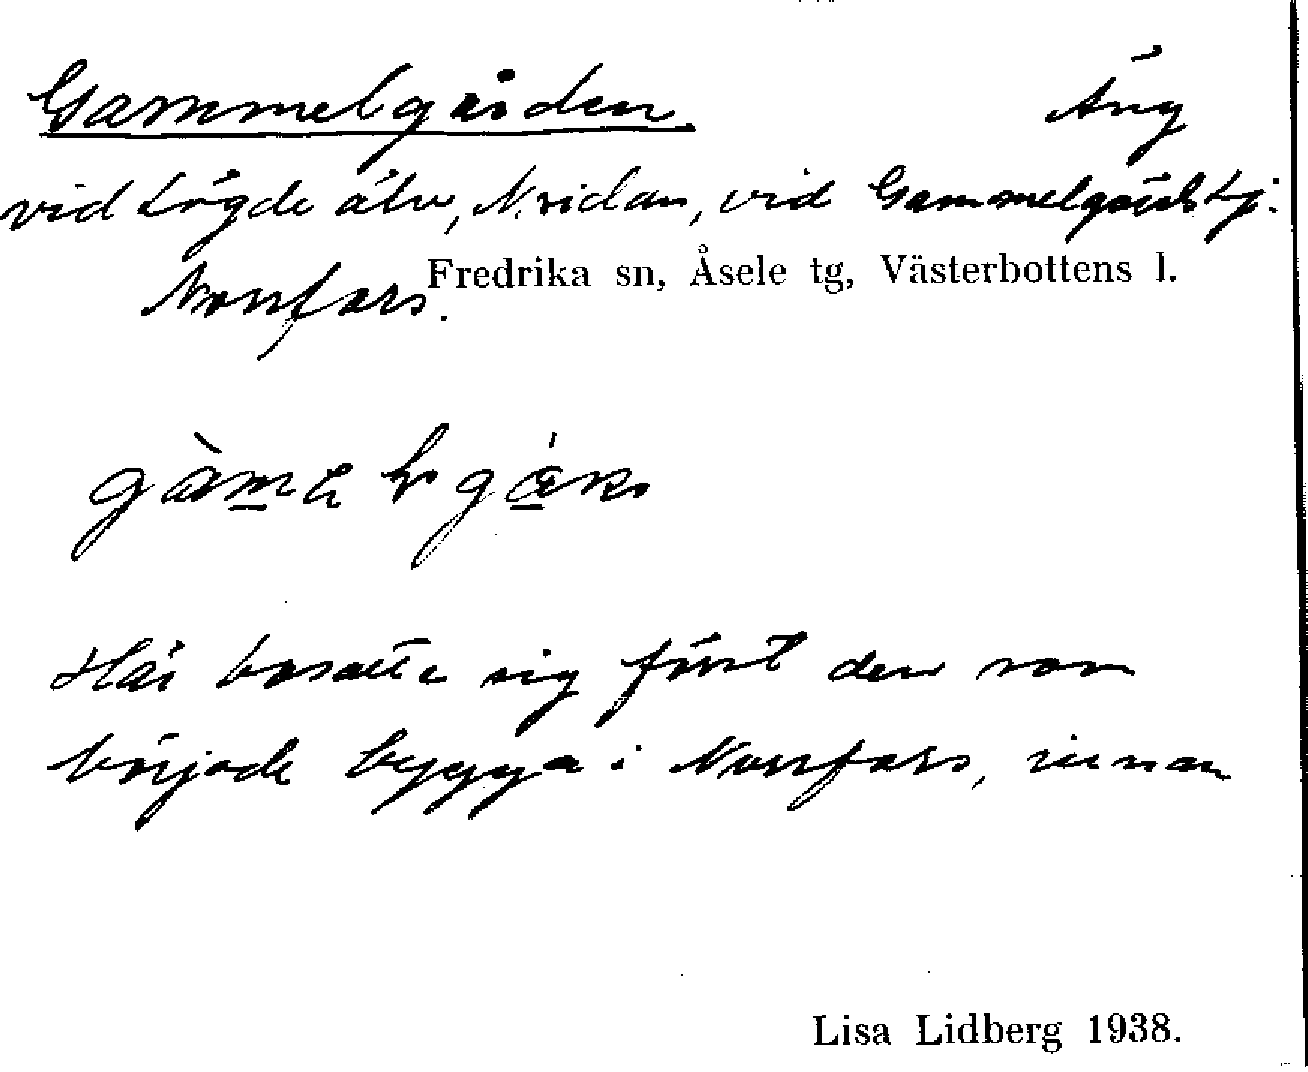 Gammelgården Äng
vid Lögde älv, N. sidan, vid Gammelgårdstj.
Fredrika sn, Åsele tg, Västerbottens l.
Norrfors.
Här bosatte sig först den som
började bygga i Norrfors, innan
Lisa Lidberg 1938.